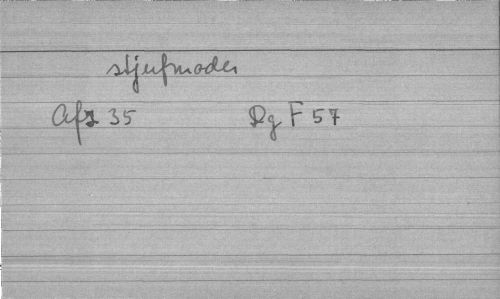 stjufmoder
Afz 35 Dg F 57